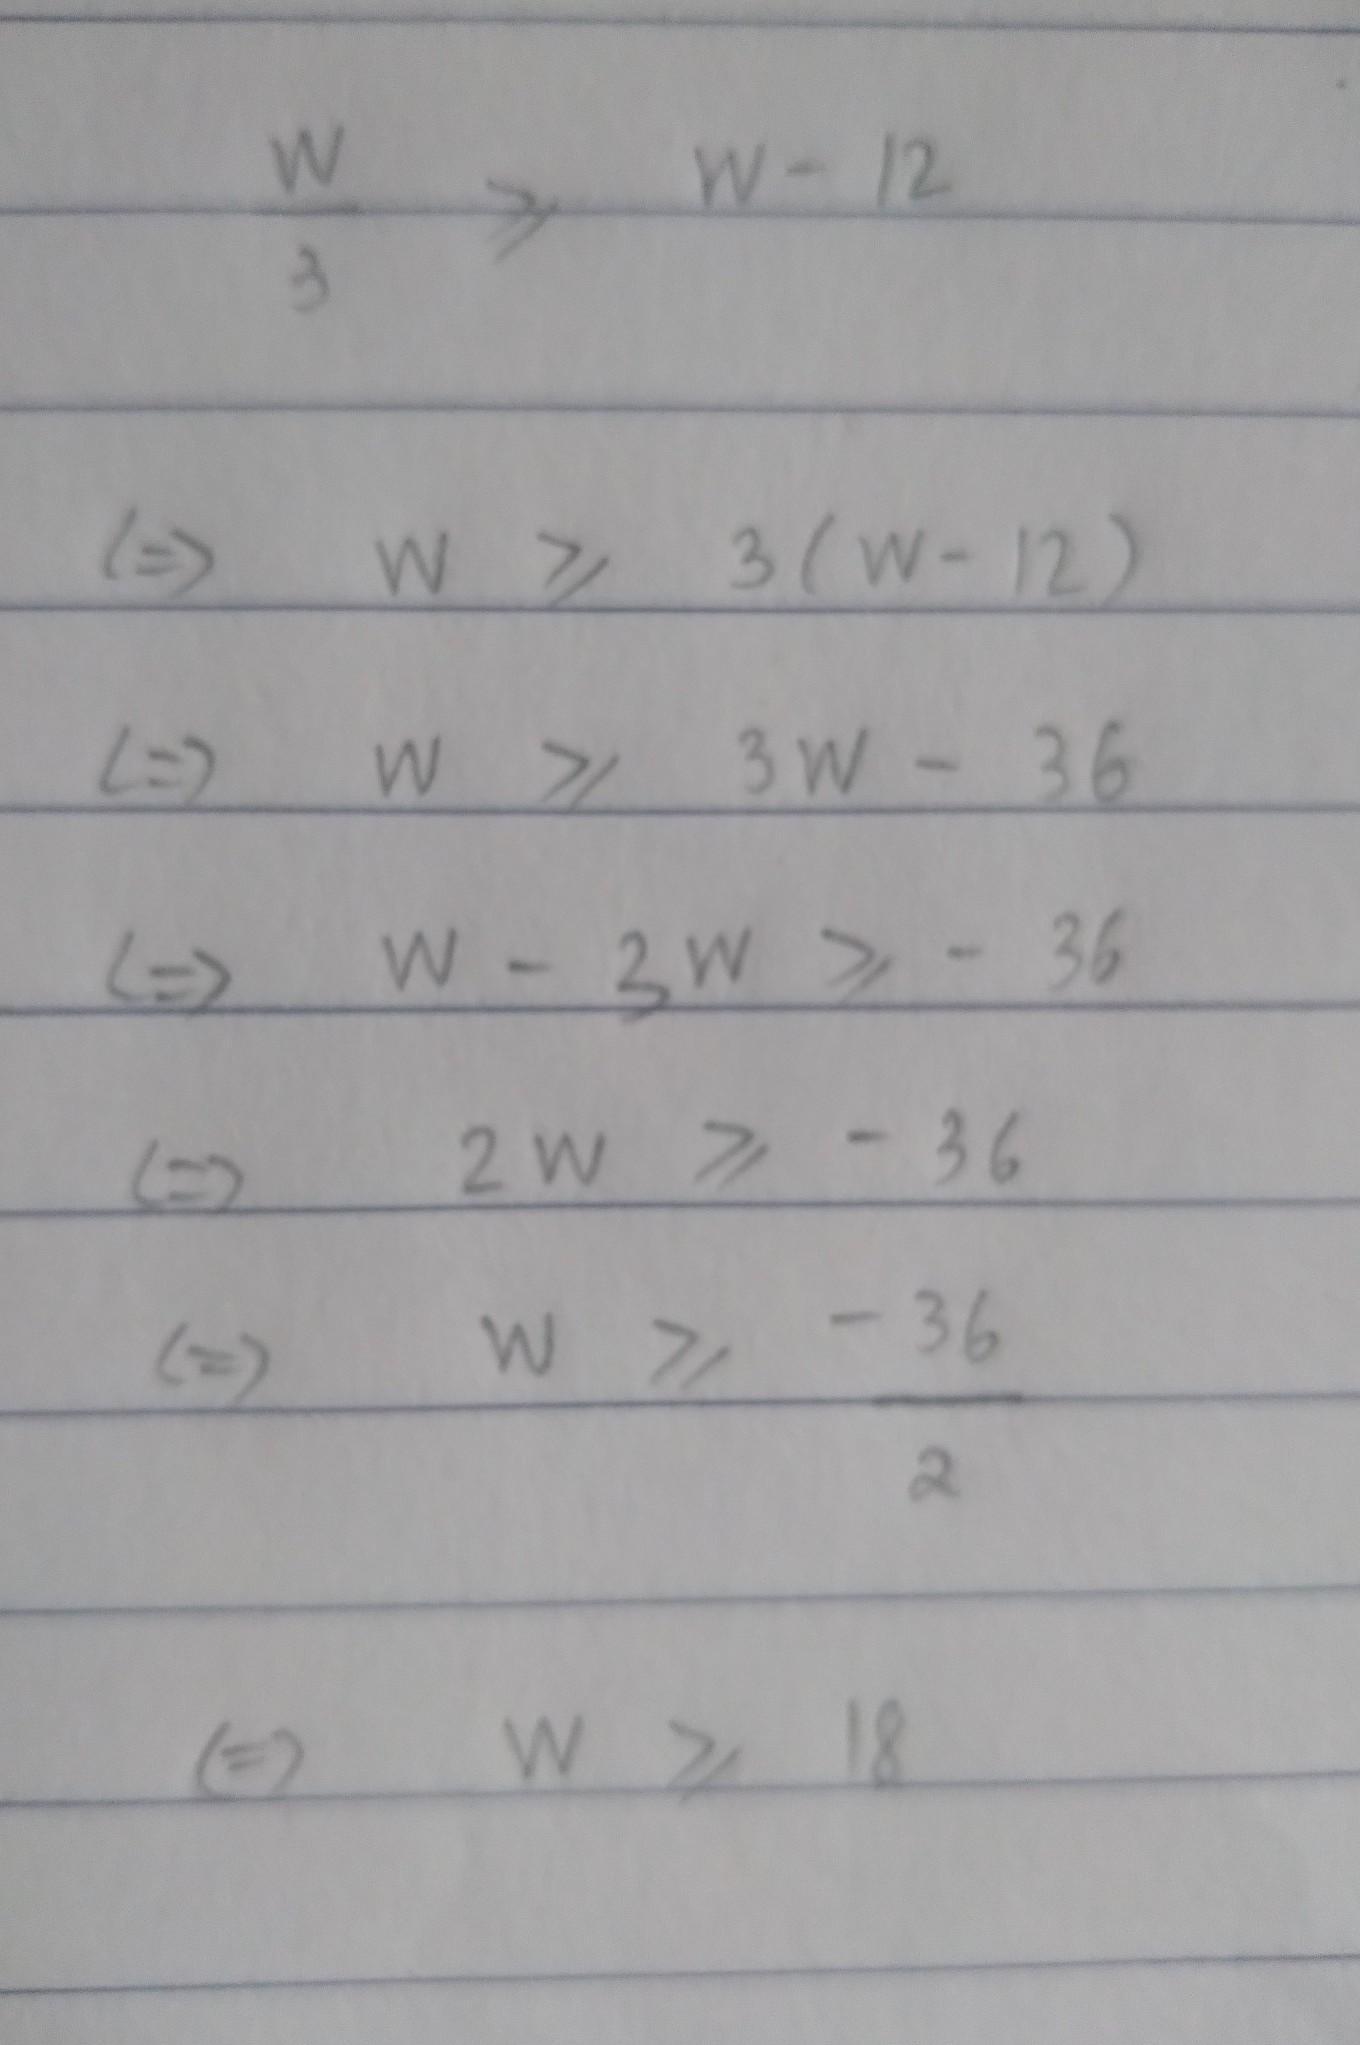 W/3 ⩾ W - 12
(=) W ⩾ 3(W - 12)
(=) W ⩾ 3W - 36
(=) W - 3W ⩾ - 36
(=) 2W ⩾ - 36
(=) W ⩾ - 36/2
(=) W ⩾ 18